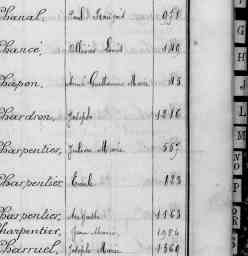 Chanal, Paul François 978
Chance, Ollivier Louis 180
Chapon, Aimé Guillaume Marie 85
Chardron, Joseph 1216
Charpentier, Julien Marie 557
Charpentier Emile 123
Charpentier, Auguste 1163
Charpentier, Jean Marie 1984
Charruel, Joseph Marie 1360
G
H
J
L
M
NO
P
QR
S